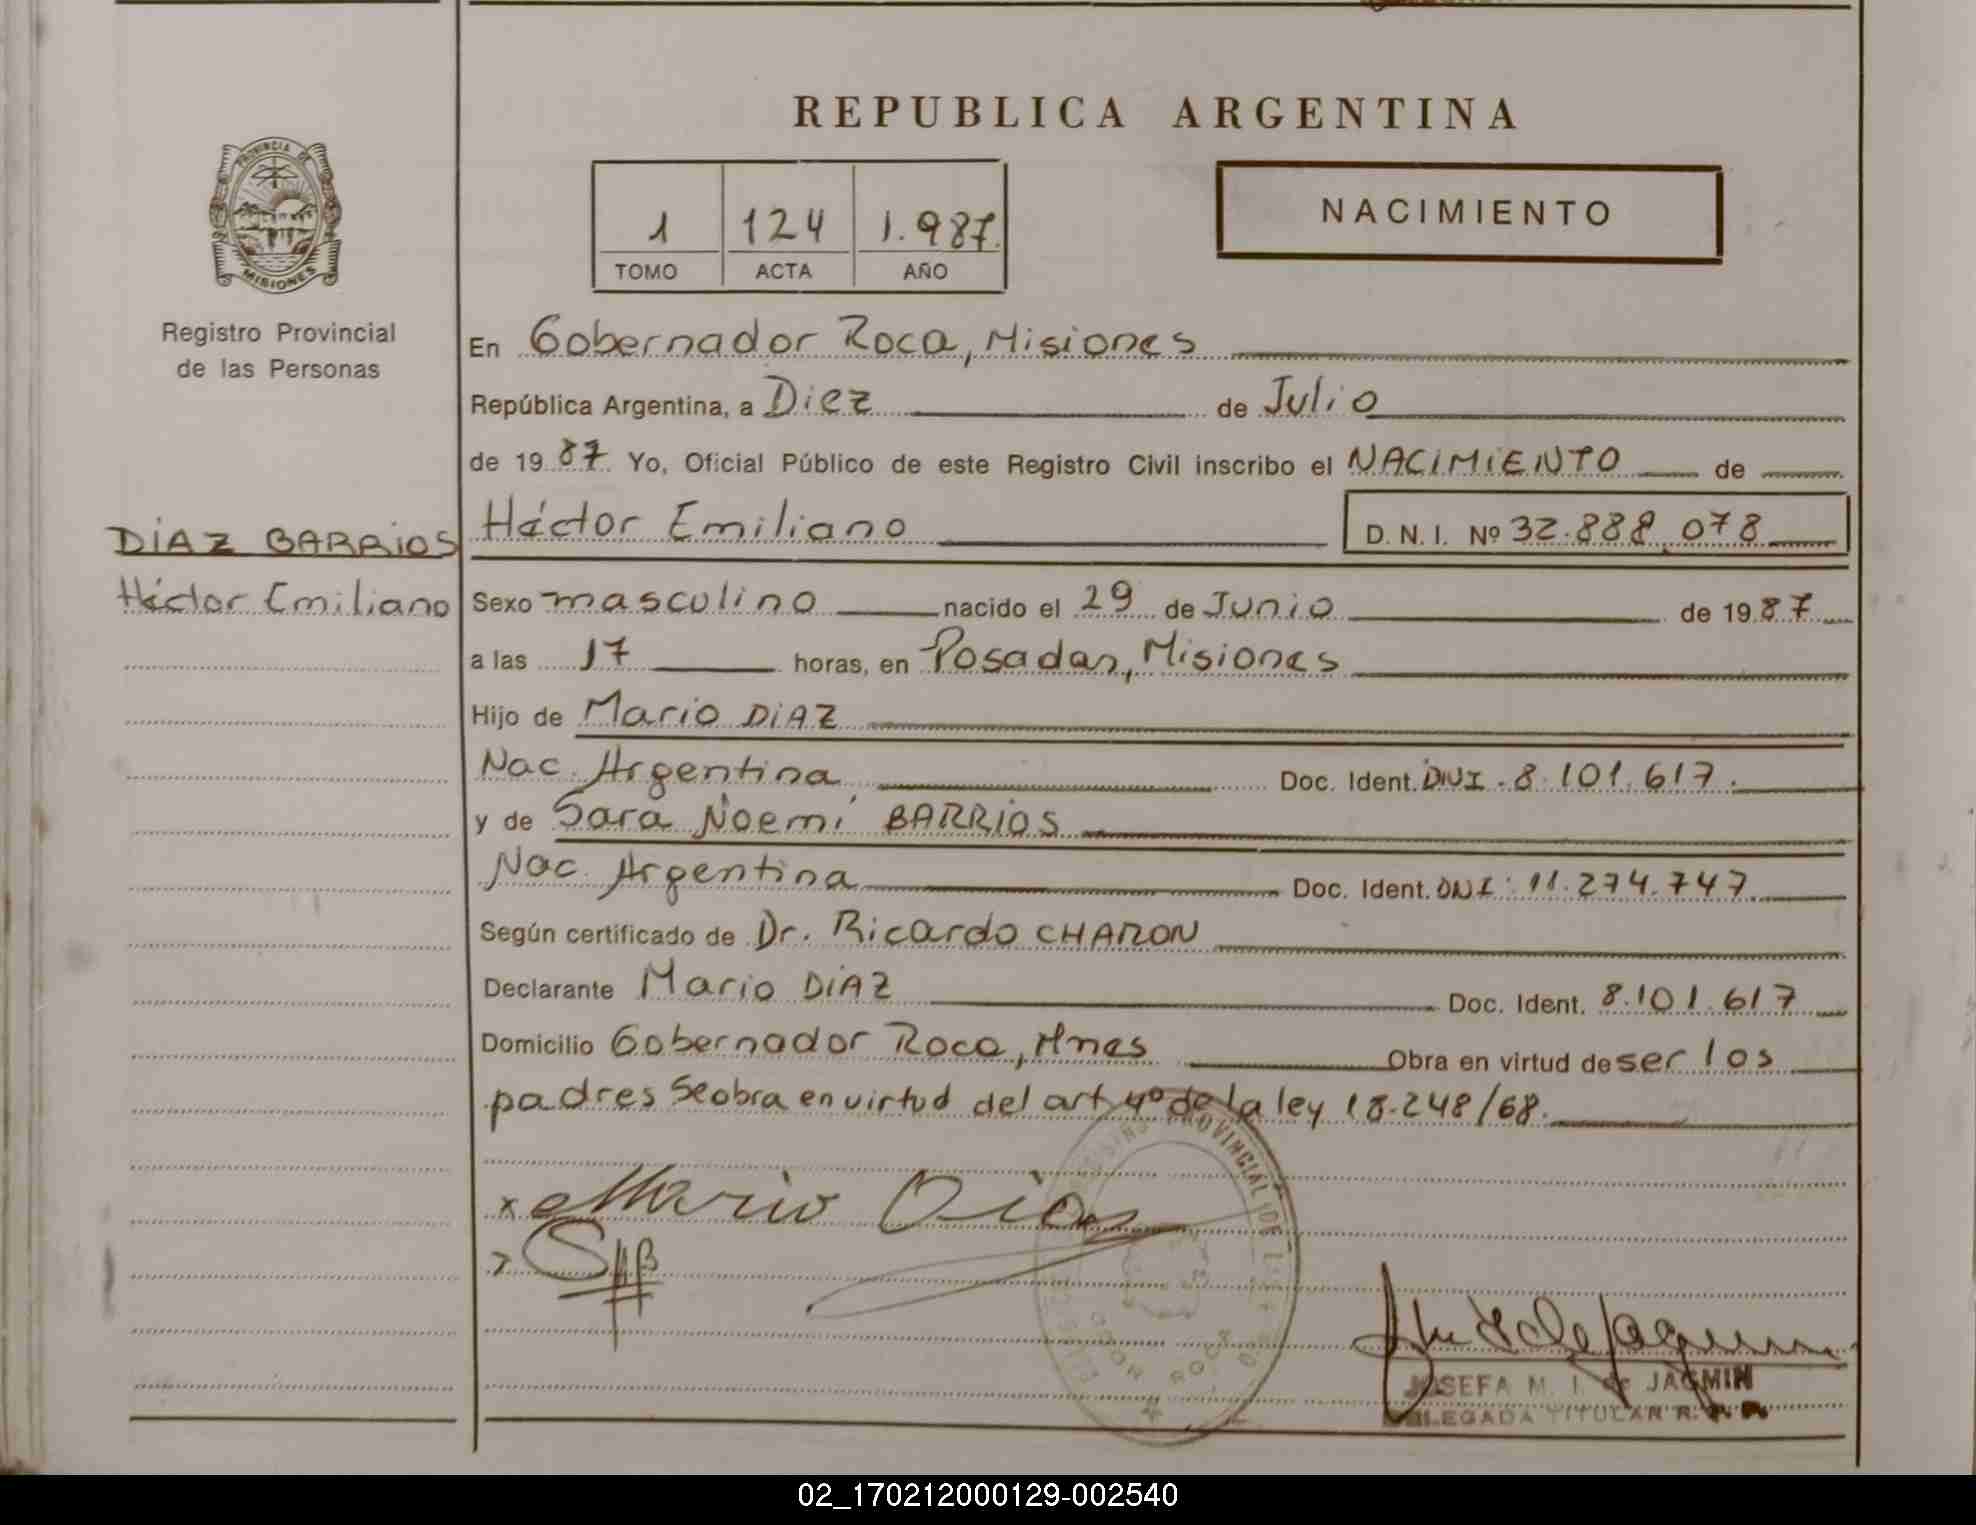 REPUBLICA ARGENTINA
PROVINCIA DE
MISIONES
Registro Provincial
de las Personas
1 124 1.987.
TOMO ACTA AÑO
NACIMIENTO
En Gobernador Roca, Misiones
República Argentina, a Diez de Julio
de 19 87 Yo, Oficial Público de este Registro Civil inscribo el NACIMIENTO de
DIAZ BARRIOS
Héctor Emiliano
Héctor Emiliano D. N. I. Nº 32.888.078
Sexo masculino nacido el 29 de Junio de 19 87
a las 17 horas, en Posadas, Misiones
Hijo de Mario DIAZ
Nac. Argentina Doc. Ident. DNI. 8.101.617.
y de Sara Noemí BARRIOS
Nac. Argentina Doc. Ident. DNI: 11.274.747
Según certificado de Dr. Ricardo CHARON
Declarante Mario DIAZ Doc. Ident. 8.101.617
Domicilio Gobernador Roca, Mnes Obra en virtud de ser los
padres Se obra en virtud del art 4º de la ley 18.248/68.
x Mario Dias
PROVINCIAL DE
ROCA
JOSEFA M. I. de JAGMIN
DELEGADA TITULAR R. P. P.
02_170212000129-002540